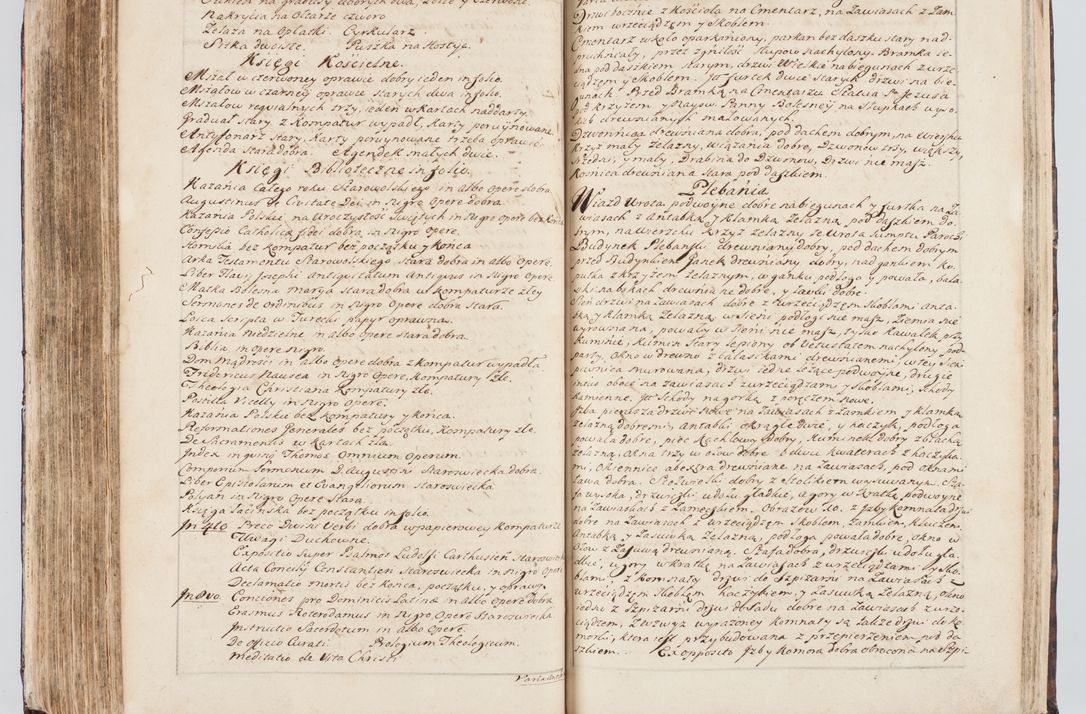 Nakrycia na Ołtarze czworo
Żelaza na Opłatki. Cyrkularz.
Puszka na Hostye.
Księgi Kościelne.
Mszał w czerwoney oprawie dobry ieden in folio.
Mszałow w czarney oprawie starych dwa in folio.
Mszałow requialnych trzy, ieden w kartach naddarty.
Graduał stary z kompatur wypadł, karty powyynowane
Antyfonarz stary, karty powyynowane trzeba oprawic.
Agenda stara dobra. Agendek małych dwie.
Księgi Biblioteczne in folio.
Kazania Całego roku Starowolskiego in albo opere dobra.
Augustinus de Civitate Dei in nigro Opere dobra.
Kazania Polskie na Uroczystość Swiętych in nigro opere bez końca
Confessio Catholica fidei dobra in nigro Opere.
Homilia bez kompatur bez początku y końca
Arka Testamentu Starowolskiego stara dobra in albo Opere.
Liber Flavij Josephi Antiquitatum Antiquus in nigro Opere
Matka Bolesna Marya stara dobra w kompaturze złey
Sermones de Ordinibus in nigro Opere dobra stara.
Kazania Niedzielne in albo opere stara dobra
Biblia in opere nigro.
Dom Mądrości in albo Opere dobra z kompatur wypadła
Fridericus Nausea in nigro Opere, kompatury złe.
Theologia Christiana kompatury złe.
Postilla in nigro opere.
Kazania Polskie bez kompatury y końca.
Reformationes Generales bez początku, kompatury złe
De Sacramentis w kartach zła.
Index in Thomos Omnium Operum.
Sermonum D. Augustini Starowiecka dobra.
Liber Epistolarum et Evangeliorum starowiecka
in nigro Opere stara
Księga Łacińska bez początku in folio.
In 4to Preco Divini Verbi dobra w papierowey kompaturze
Uwagi Duchowne.
Expositio super Psalmos Ludolfi Carthusien. starowiecka
Acta Concilij Constantien. Starowiecka in nigro Opere
Declamatio Mortis bez końca, początku, y oprawy.
In 8vo. Conciones pro Dominicis Latina in albo Opere dobra
Erasmus Roterodamus in nigro Opere Starowiecka.
Instructio Sacerdotum in albo Opere.
De Officio Curati. Theologicum.
Meditatio de Vita Christi
Drzwi boczne z Kościoła na Cmentarz, na zawiasach z Zam-
kiem wrzeciądzem y Skoblem.
Cmentarz wkoło oparkaniony, parkan bez daszku stary nad-
pruchniały, przez zgniłość słupow nachylony. Bramka ie-
dna pod daszkiem starym, drzwi Wielkie na biegunach z wrze-
ciądzem y Skoblem. Fortek dwie starych drzwi na bie-
gunach. Przed Bramką na Cmentarzu Statua Pa. Jezusa
pod Krzyżem y Nayśw. Panny Bolesney na Słupkach w go-
drewnianych malowanych.
Dzwonnica drewniana dobra, pod dachem dobrym, na wierzchu
Krzyż mały żelazny, wiązania dobre, Dzwonow trzy, większy,
średni, y mały, Drabina do Dzwonow, Drzwi nie masz.
Kośnica drewniana stara pod daszkiem.
Plebania
Wiazd Wrota podwoyne dobre na biegunach y furtka na Za-
wiasach z Antabką y Klamką żelazną pod daszkiem do-
brym, na wierzchu Krzyż żelazny te Wrota Sumptu Parochi.
Budynek Plebanski drewniany dobry, pod dachem dobrym
przed Budynkiem Ganek drewniany dobry, nad gankiem ko-
pułka z krzyżem żelaznym, w ganku podłoga y powała, bala-
ski na bokach drewniane dobre, y ławki dobre.
Sień drzwi na zawiasach dobre z wrzeciądzem, skoblami Anta-
bką y klamką żelazną, w sieni podłogi nie masz, ziemia nie
wyrownana, powały w sieni nie masz, tylko kawałek przy
kuminie, Kumin stary lepiony ob Vetustatem nachylony, pod-
party, okno w drewno z balasikami drewnianemi, w tey sieni
piwnica murowana, drzwi iedne leżące podwoyne, drugie
oboie na zawiasach z wrzeciądzami y skoblami, schody
kamienne. Schody na gorkę z poręczem nowe.
Izba pierwsza drzwi nowe na zawiasach z zamkiem y klamką
żelazną dobremi, Antabki okrągłe dwie, y haczyk, podłoga
powała dobre, piec kachlowy dobry, kuminek dobry z blachą
żelazną, okna trzy w ołow dobre o dwu kwaterach z haczyka-
mi, okiennice drewniane na zawiasach, pod oknami
ława dobra. Stoł dobry z stolikiem wysuwanym. Sza-
fa wysoka, drzwiczki u dołu gładkie, u gory w kratkę podwoyne
na zawiasach z zameczkiem. Obrazow 10. z Izby komnata drzwi
dobre na zawiasach z wrzeciądzem Skoblem, zamkiem, kluczem,
Antabką y zasuwką żelazną, podłoga powała dobre, okno w
ołow z zasuwą drewnianą. Szafa dobra, drzwiczki u dołu gła-
dkie, u gory w kratkę na zawiasach z wrzeciądzami y sko-
blami, z komnaty drzwi do Szpizarni na zawiasach z
wrzeciądzem Skoblem haczykiem, y zasuwką żelazną, okno
iedno z Szpizarni drzwi do Sadu dobre na zawiasach z wrze-
ciądzem, z wzwyż wyrażoney komnaty są także drzwi do ko-
morki, ktora iest przybudowana z przepierzeniem pod da-
szkiem. Ex opposito Izby Komora dobra obrocona na Szpi-